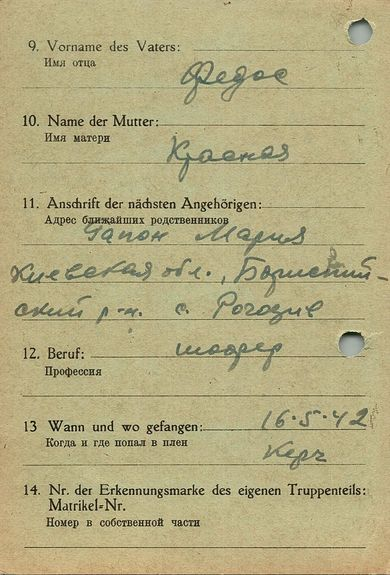 9. Vorname des Vaters:
Имя отца
Федос
10. Name der Mutter:
Имя матери
Красная
11. Anschrift der nächsten Angehörigen:
Адрес ближайших родственников
Гапон Мария
Киевская обл., Бориспий-
ский р-н. с. Рогозив
12. Beruf:
шофер
Профессия
13 Wann und wo gefangen:
16·5·42
Когда и где попал в плен
Керч
14. Nr. der Erkennungsmarke des eigenen Truppenteils:
Matrikel-Nr.
Номер в собственной части